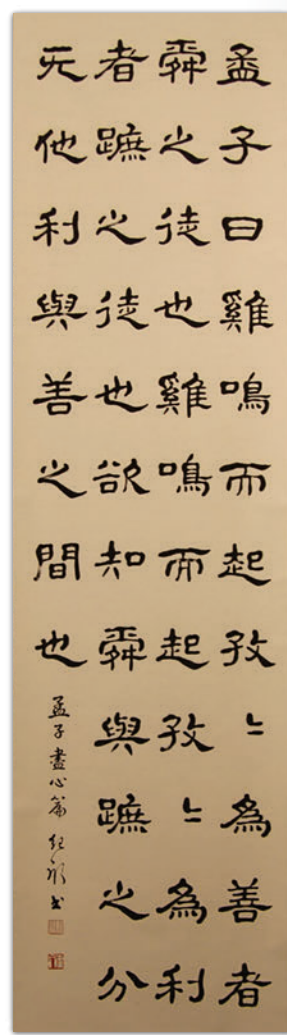 孟子曰雞鳴而起孜〻為善者
舜之徒也雞鳴而起孜〻為利
者蹠之徒也欲知舜與蹠之分
无他利與善之間也
孟子盡心篇 紀彰書